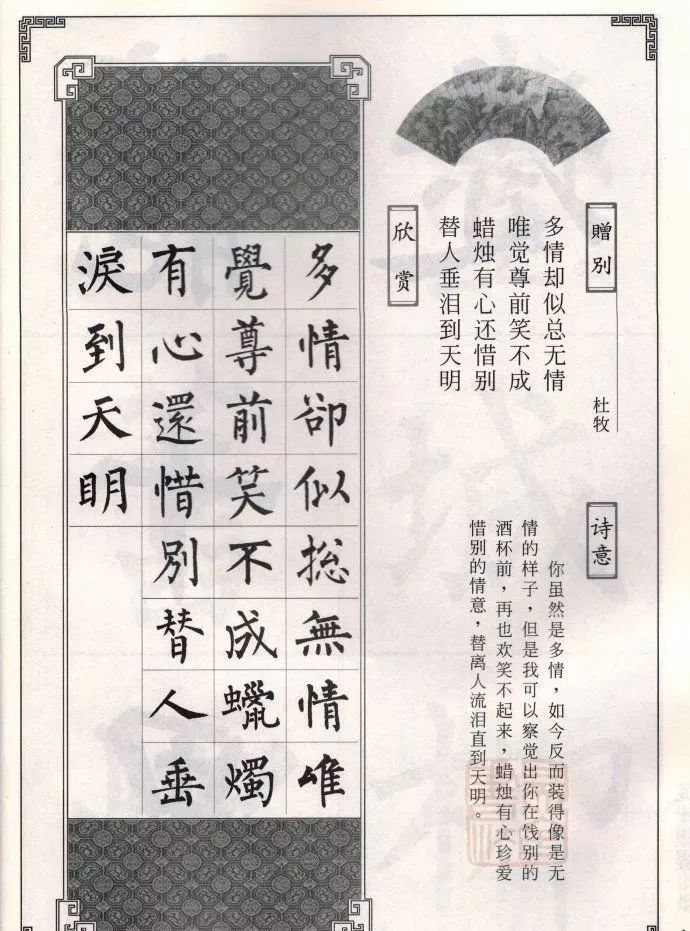 赠别
杜牧
多情却似总无情
唯觉尊前笑不成
蜡烛有心还惜别
替人垂泪到天明
欣赏
诗意
你虽然是多情，如今反而装得像是无
情的样子，但是我可以察觉出你在饯别的
酒杯前，再也欢笑不起来，蜡烛有心珍爱
惜别的情意，替离人流泪直到天明。
多情卻似揔無情唯
覺尊前笑不成蠟燭
有心還惜別替人垂
淚到天明